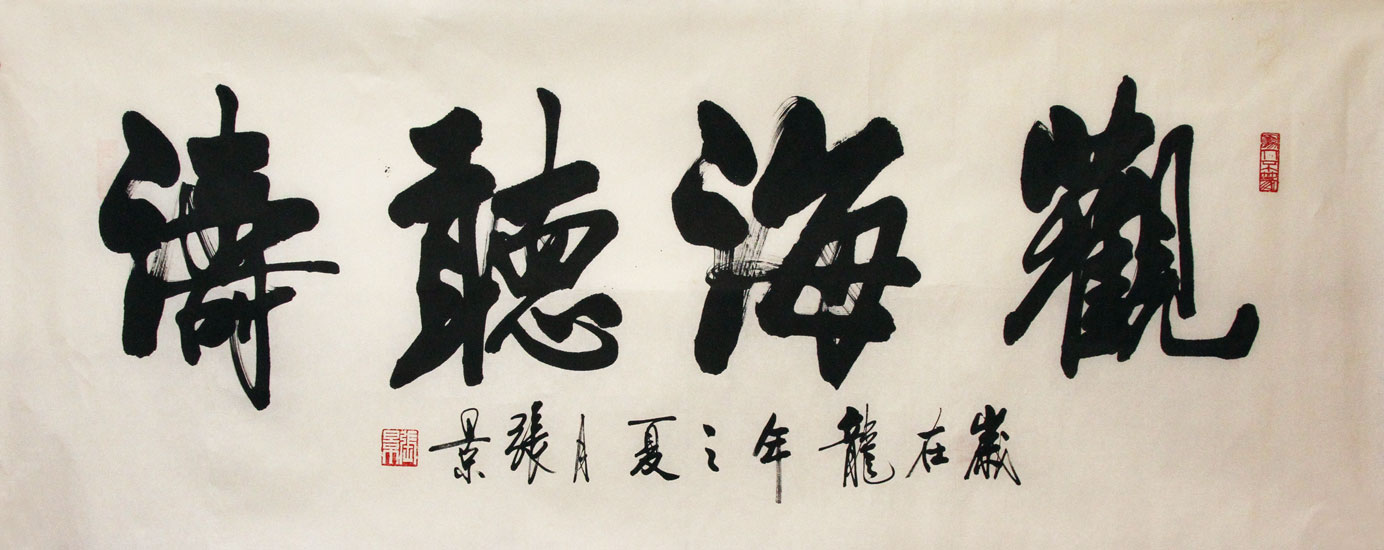 觀海聽濤
歲在龍年之夏月張景
張景